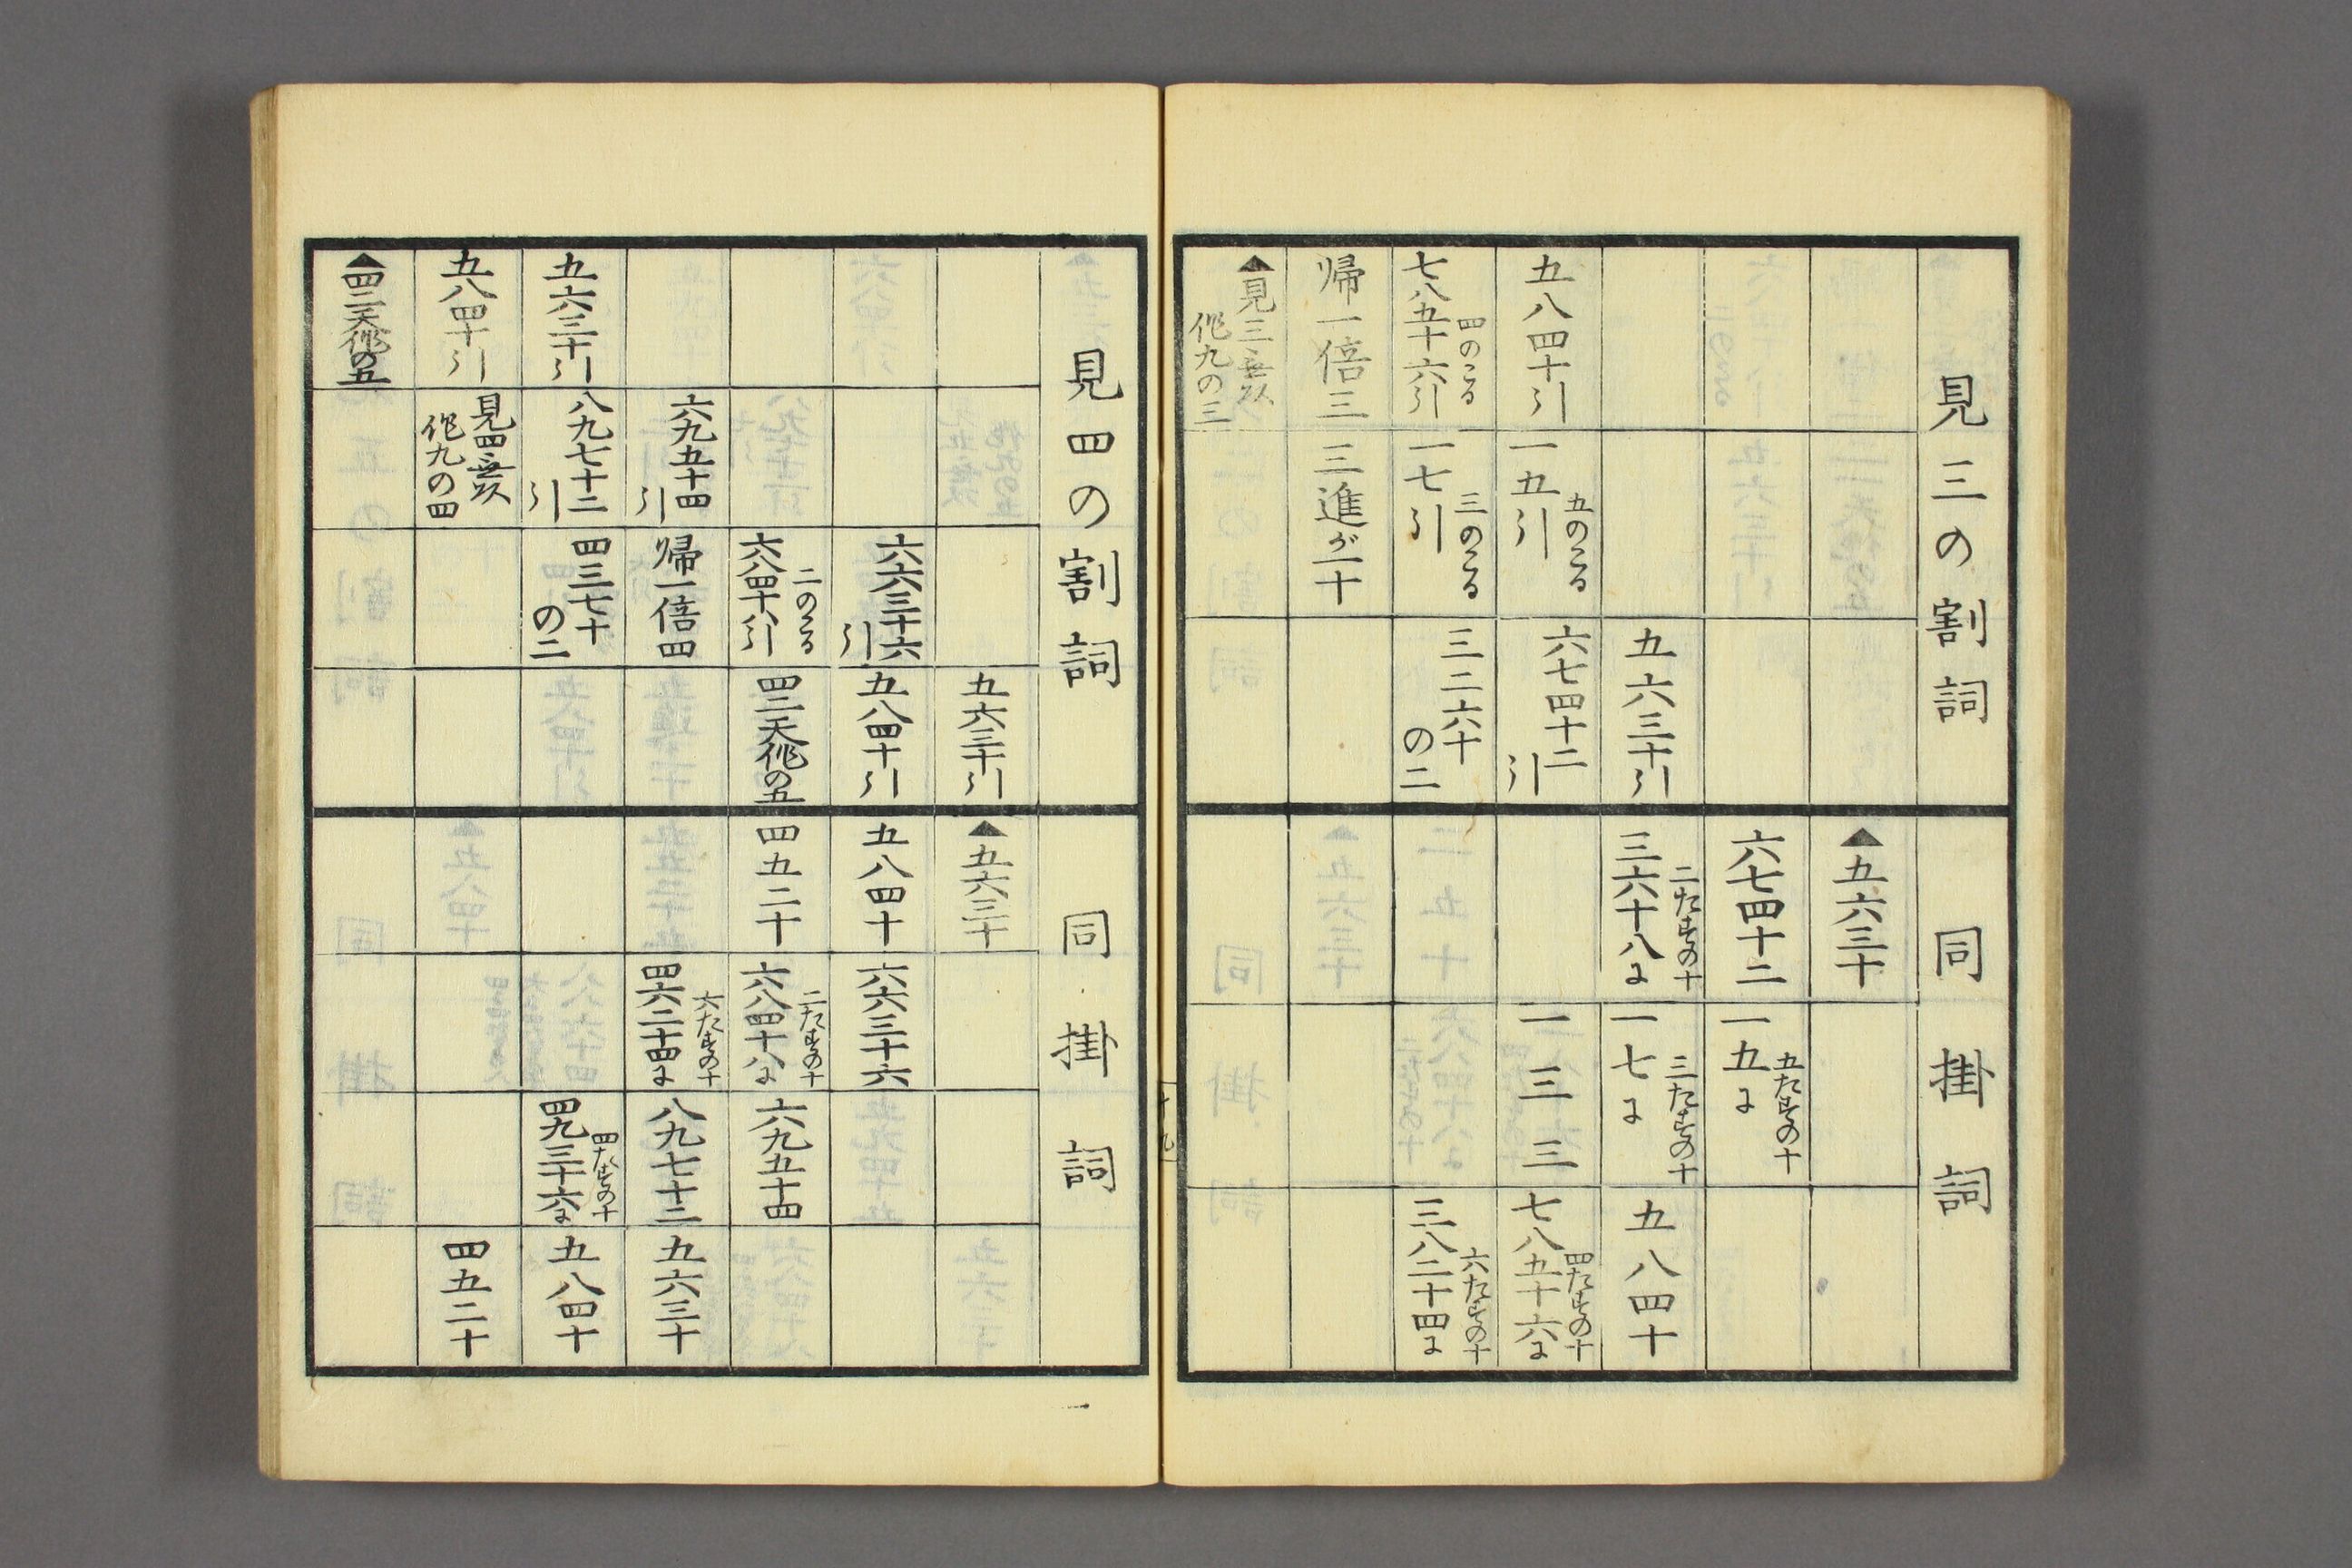 見三の割詞
五六三十引
五八四十引
一五引
五のこる
六七四十二
引
七八五十六引
四のこる
一七引
三のこる
三二六十
の二
帰一倍三
三進が一十
▲見三無㐧
作九の三
同掛詞
▲五六三十
六七四十二
一五に
五たすの十
三六十八に
二たすの十
一七に
三たすの十
五八四十
一三三
七八五十六に
四たすの十
三八二十四に
六たすの十
見四の割詞
五六三十引
六六三十六
引
五八四十引
六八四十八引
二のこる
四二天作の五
六九五十四
引
帰一倍四
五六三十引
八九七十二
引
四三七十
の二
五八四十引
見四無
作九の四
▲四二天作の五
同掛詞
▲五六三十
五八四十
六六三十六
四五二十
六八四十八に
二たすの十
六九五十四
四六二十四に
六たすの十
八九七十二
五六三十
四九三十六に
四たすの十
五八四十
四五二十